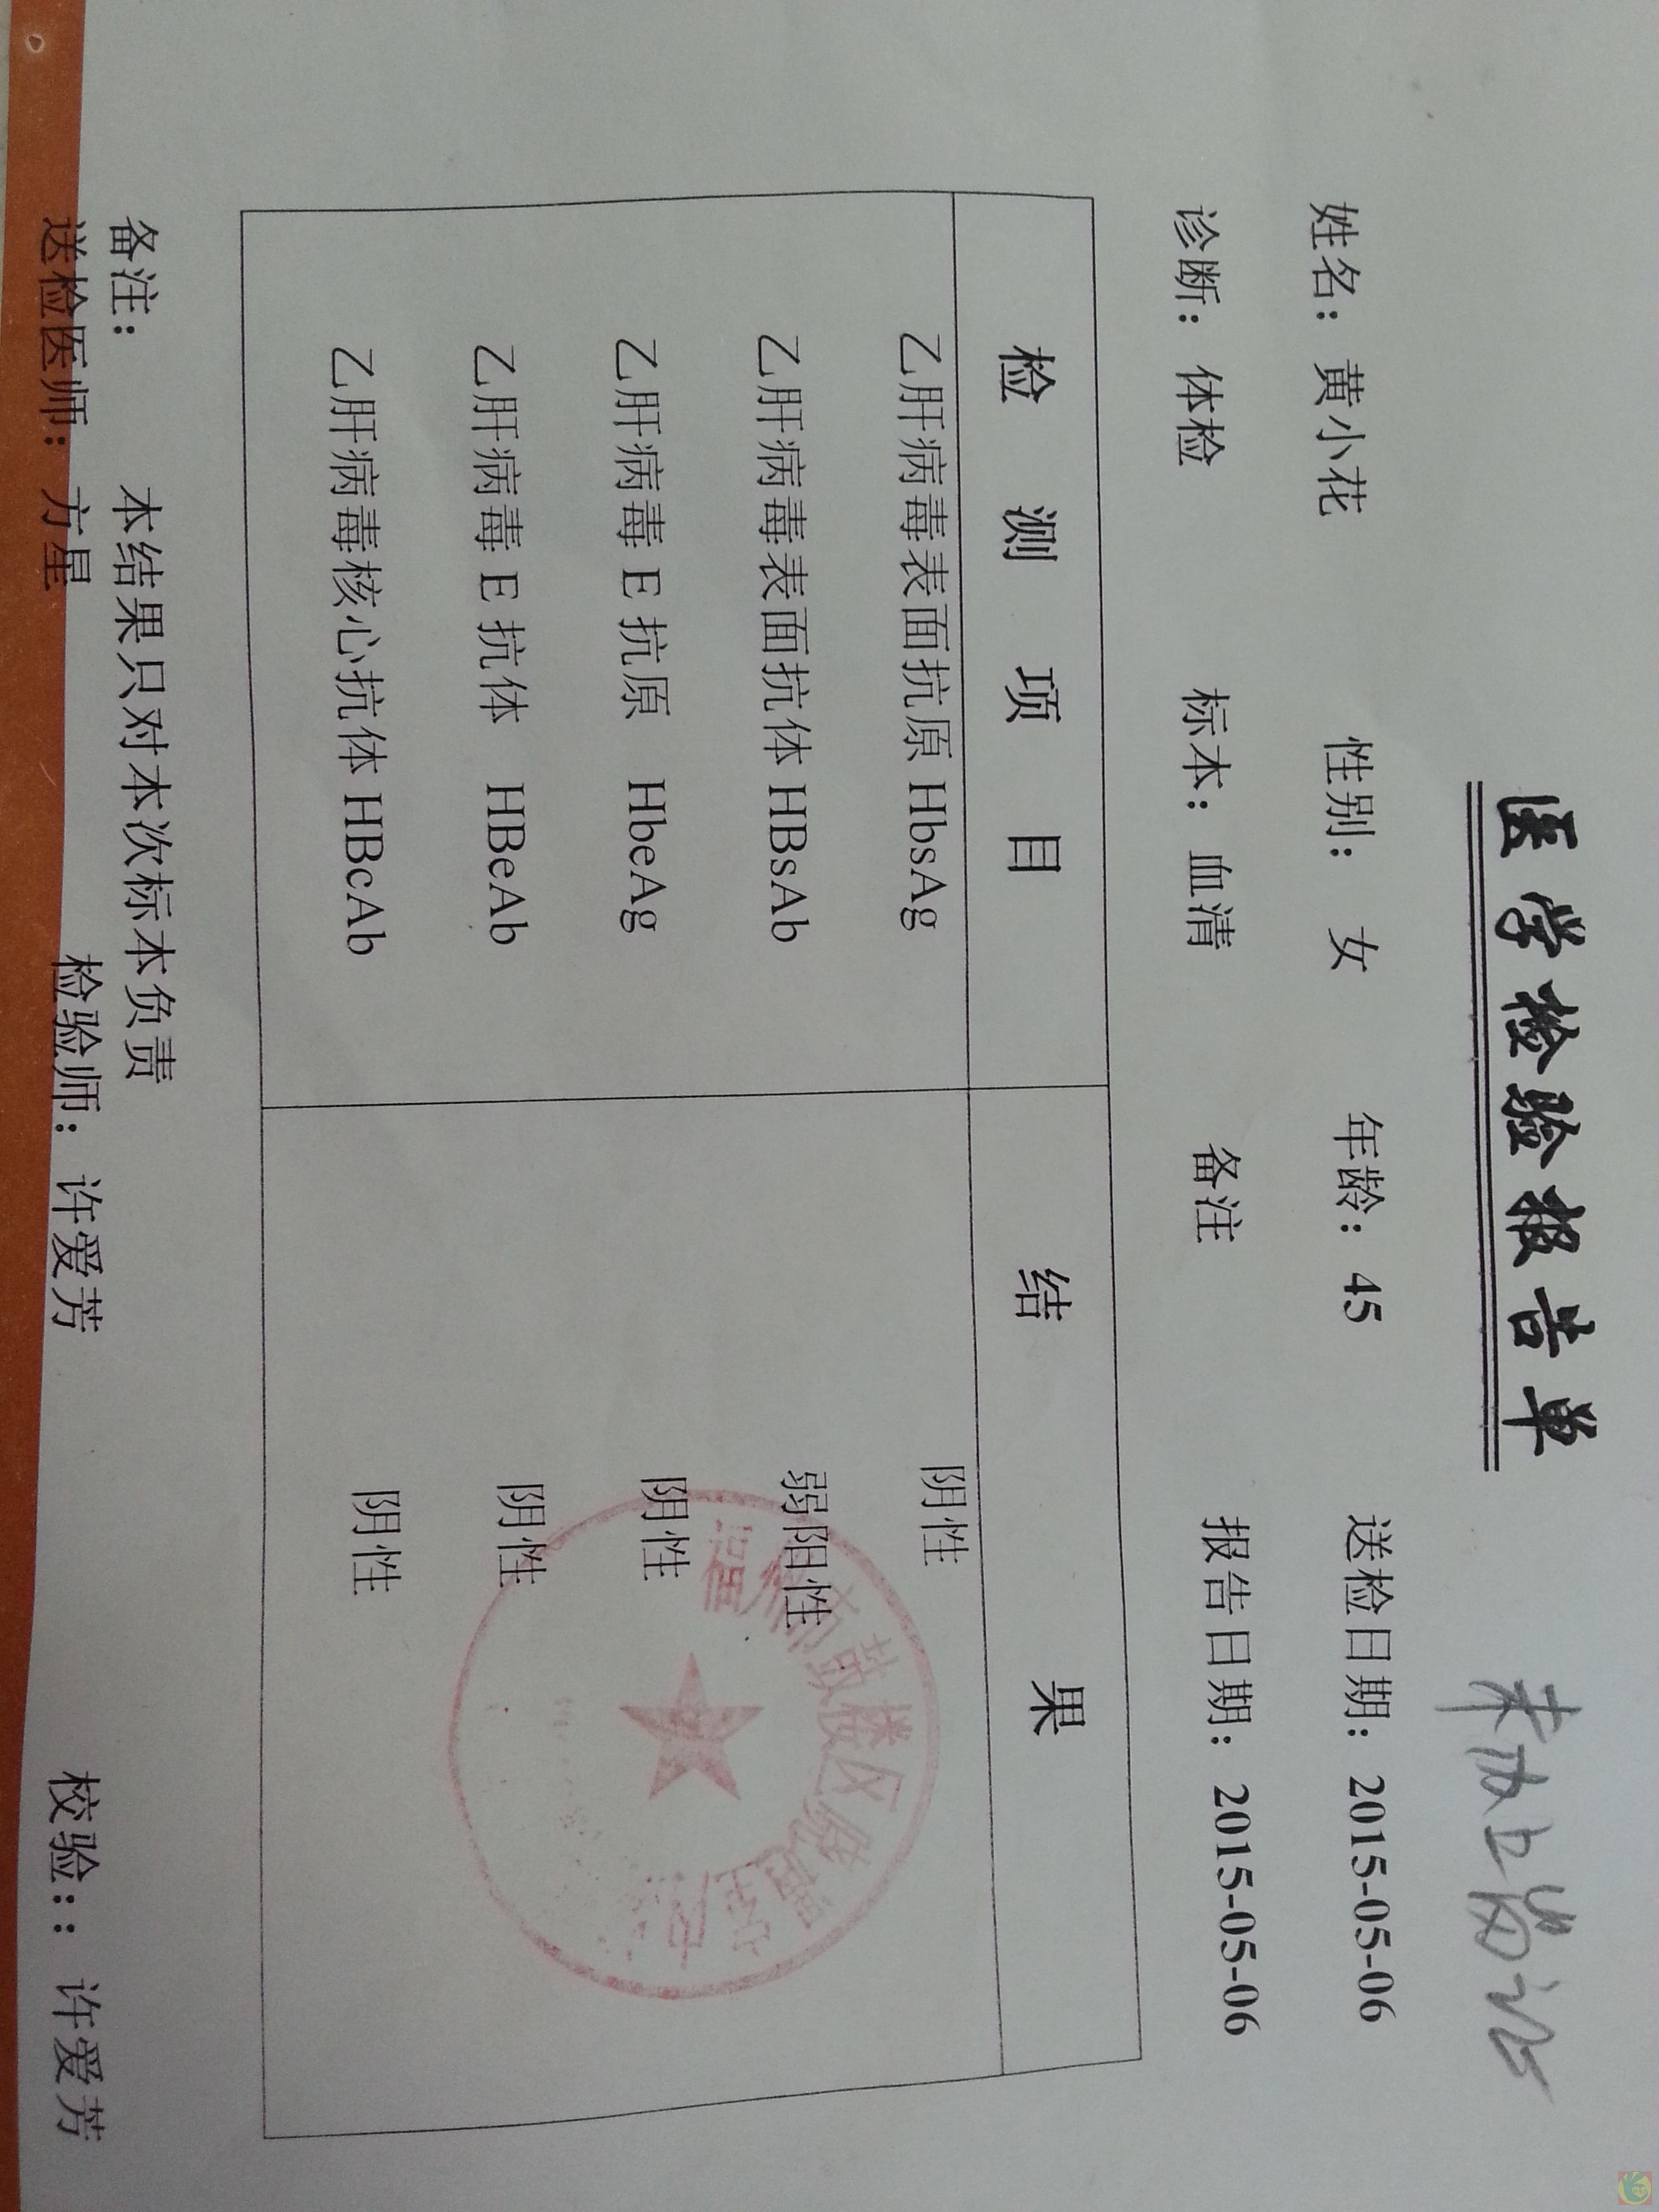 医学检验报告单
姓名：黄小花 性别：女 年龄：45 送检日期：2015-05-06
诊断：体检 标本：血清 备注 报告日期：2015-05-06
检测项目 结果
乙肝病毒表面抗原 HbsAg 阴性
乙肝病毒表面抗体 HBsAb 弱阳性
乙肝病毒 E 抗原 HbeAg 阴性
乙肝病毒 E 抗体 HBeAb 阴性
乙肝病毒核心抗体 HBcAb 阴性
鼓楼区
备注： 本结果只对本次标本负责
送检医师：方星 检验师：许爱芳 校验：：许爱芳